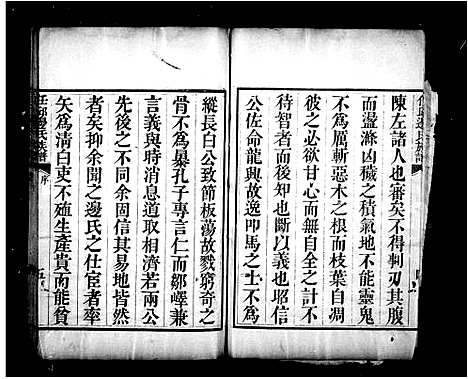 陳左諸人也審矣不得剚刃其腹
而盪滌凶穢之積氣地不能靈鬼
不為厲斬惡木之根而枝葉自凋
彼之必欲甘心而無自全之計不
待智者而後知也斷以義也昭信
公佐命龍興故逸叩馬之士不為
縱長白公致節板蕩故戮窮奇之
骨不為暴孔子專言仁而鄒嶧兼
言義與時消息道取相濟若兩公
先後之際其易地皆然者
者矣抑余聞之邊氏之仕宦者率
矢為清白吏不殖生產貴而能貧
任邱邊氏族譜
序